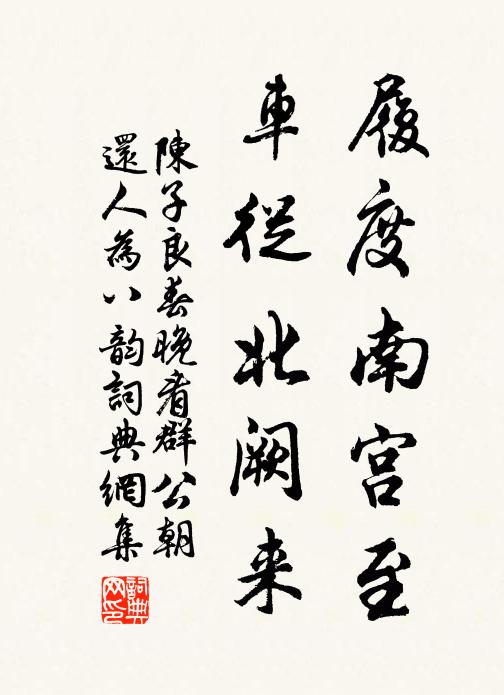 履度南宫至
車從北阙来
陳子良春晚看群公朝
還人為八韵詞典網集
詞典
网印